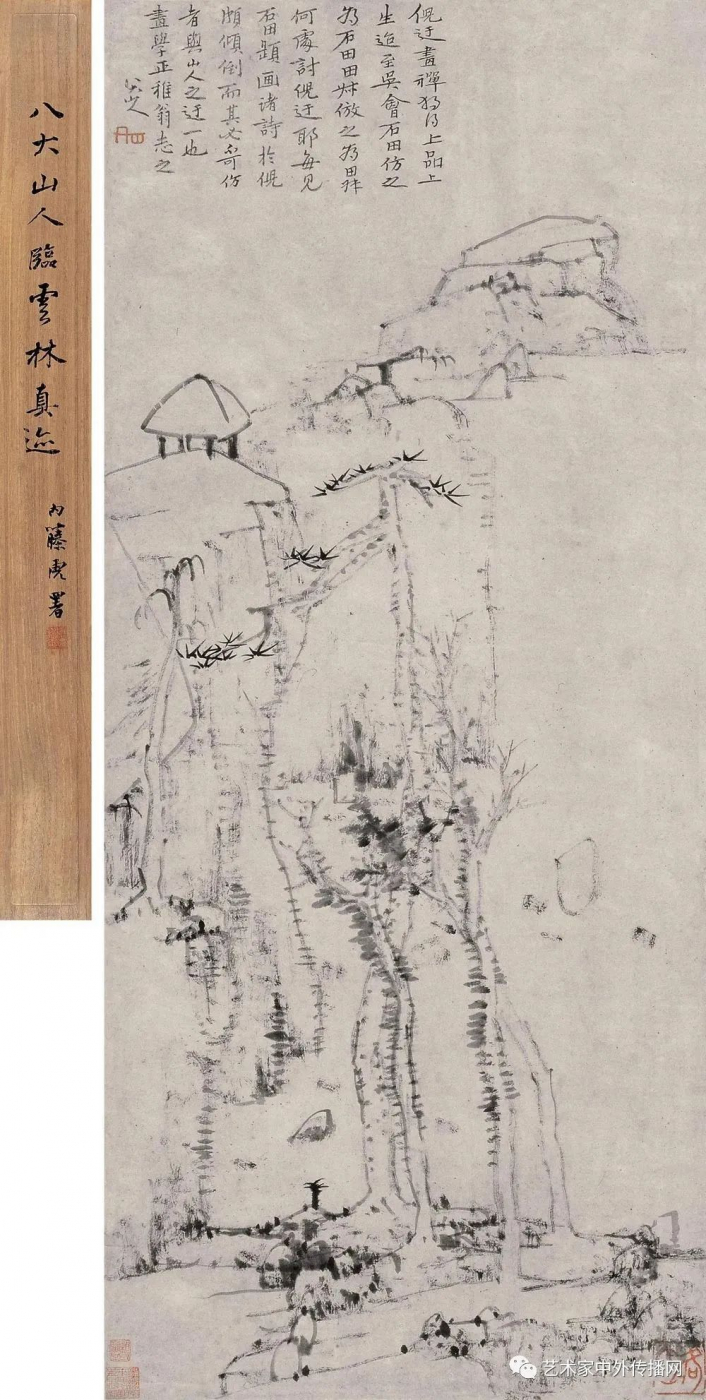 倪迂畫禪稱得上品上
生迨至吳會石田仿之
為石田田叔倣之為田叔
何處討倪迂耶每見
石田題画诸詩於倪
頗傾倒而其必不可仿
者與山人之迂一也
畫學正雅翁志之
八大山人
八大山人臨雲林真迹
内藤虎署
艺术家中外传播网